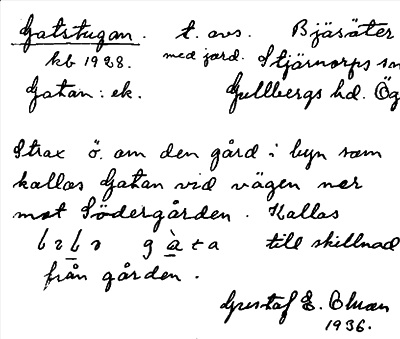 Gatstugan. t. avs. Bjäsäter
kb 1928. med jord. Stjärnorps sn
Gatan: ek. Gullbergs hd. Ög
Strax ö. om den gård i byn som
kallas Gatan vid vägen ner
mot Södergården. Kallas
gàta till skillnad
från gården.
Gustaf E.
1936.